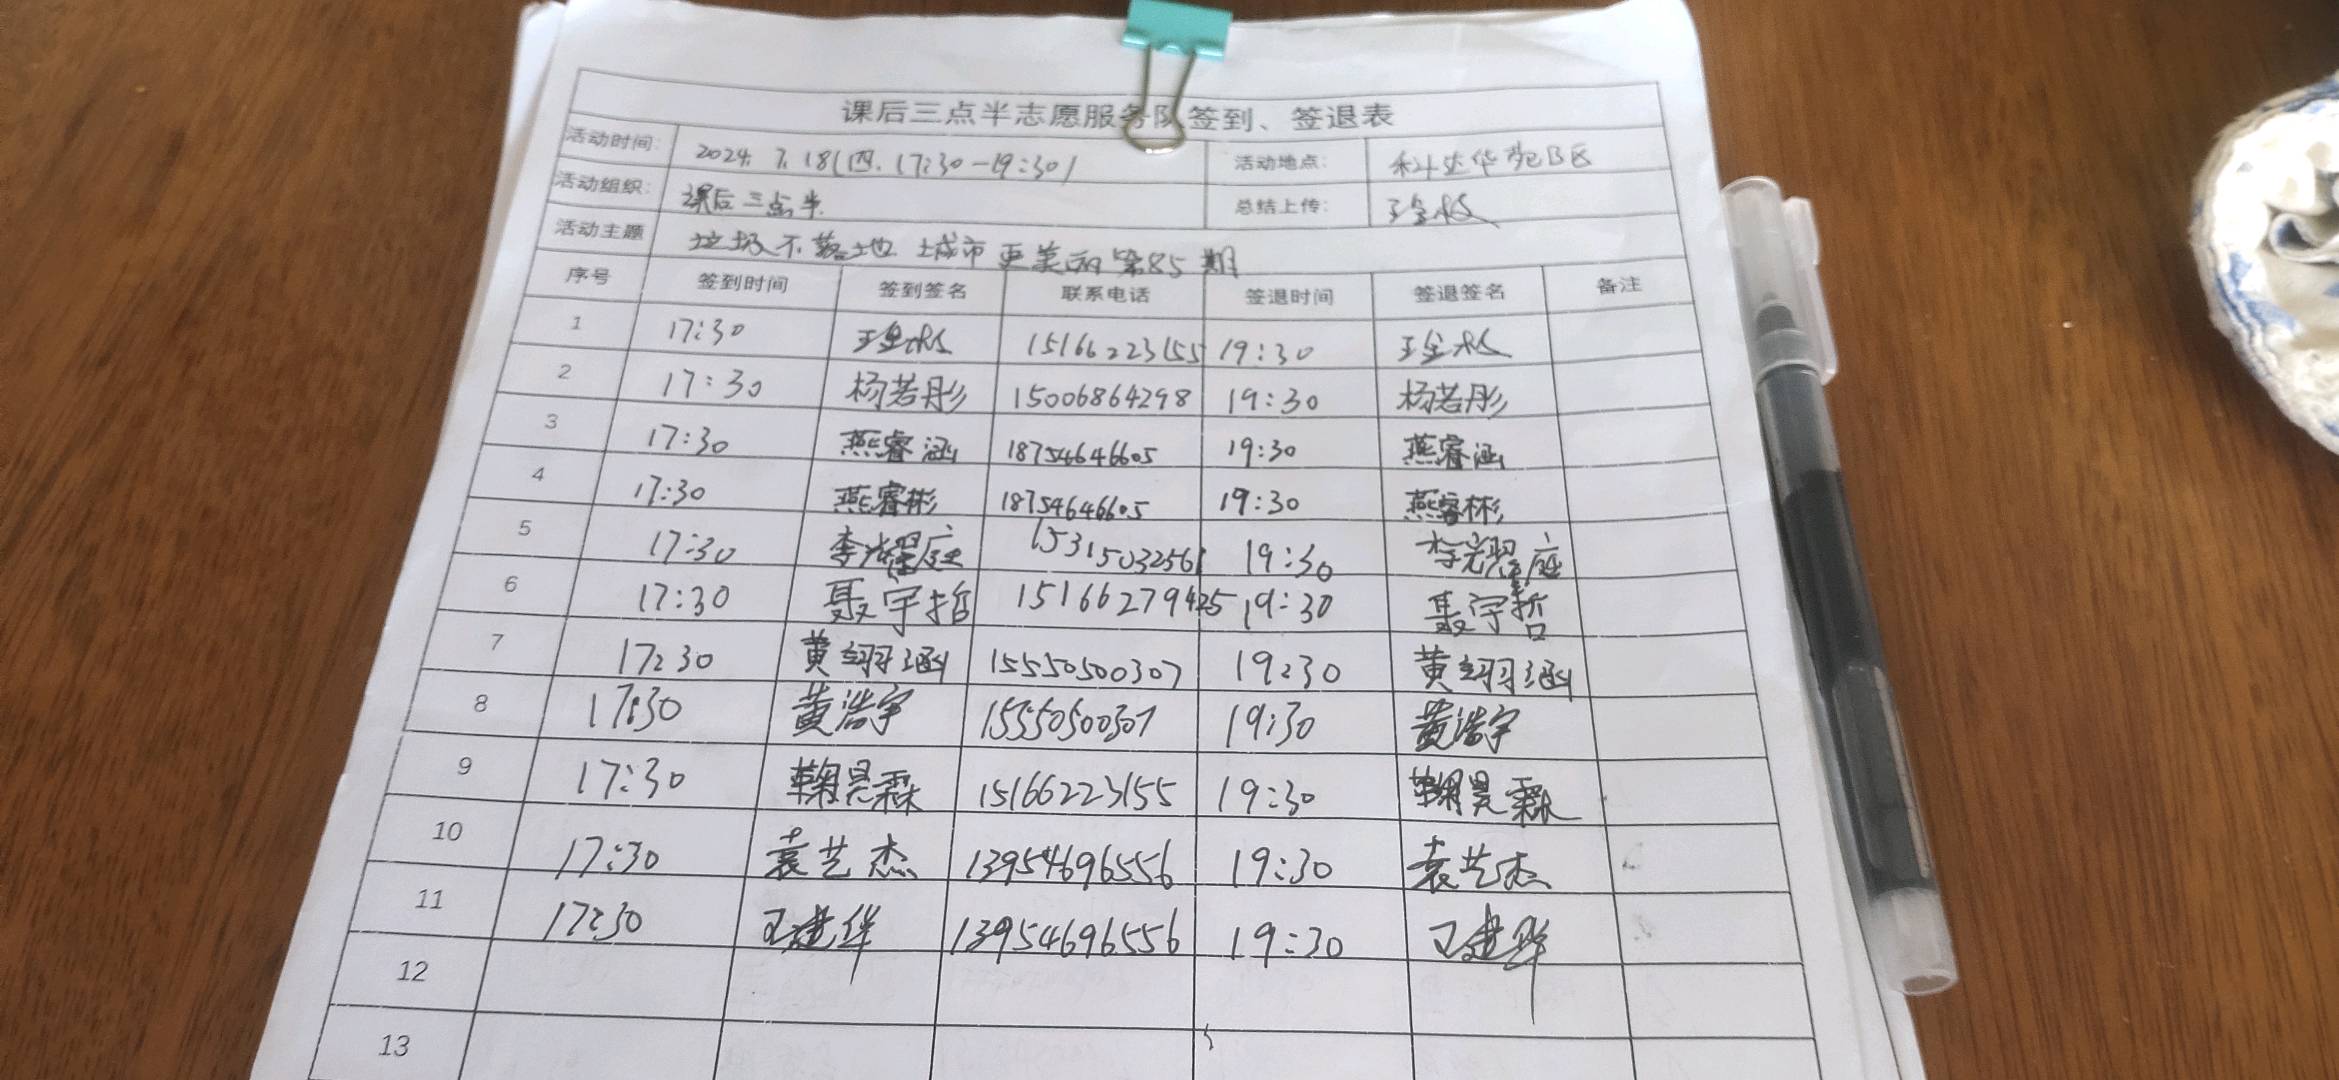 课后三点半志愿服务队签到、签退表
活动时间: 2024. 7. 18(四. 17:30-19:30) 活动地点: 科达华苑B区
活动组织: 课后三点半 总结上传:
活动主题 垃圾不落地 城市更美丽 第85期
序号 签到时间 签到签名 联系电话 签退时间 签退签名 备注
1 17:30 15166223155 19:30
2 17:30 杨若彤 15006864298 19:30 杨若彤
3 17:30 燕睿涵 18754646605 19:30 燕睿涵
4 17:30 燕睿彬 18754646605 19:30 燕睿彬
5 17:30 李耀庭 15315032561 19:30 李耀庭
6 17:30 聂宇哲 15166279425 19:30 聂宇哲
7 17:30 黄翊涵 15550500307 19:30 黄翊涵
8 17:30 黄浩宇 15550500307 19:30 黄浩宇
9 17:30 鞠昊霖 15166223155 19:30 鞠昊霖
10 17:30 袁艺杰 13954696556 19:30 袁艺杰
11 17:30 王建华 13954696556 19:30 王建华
12
13